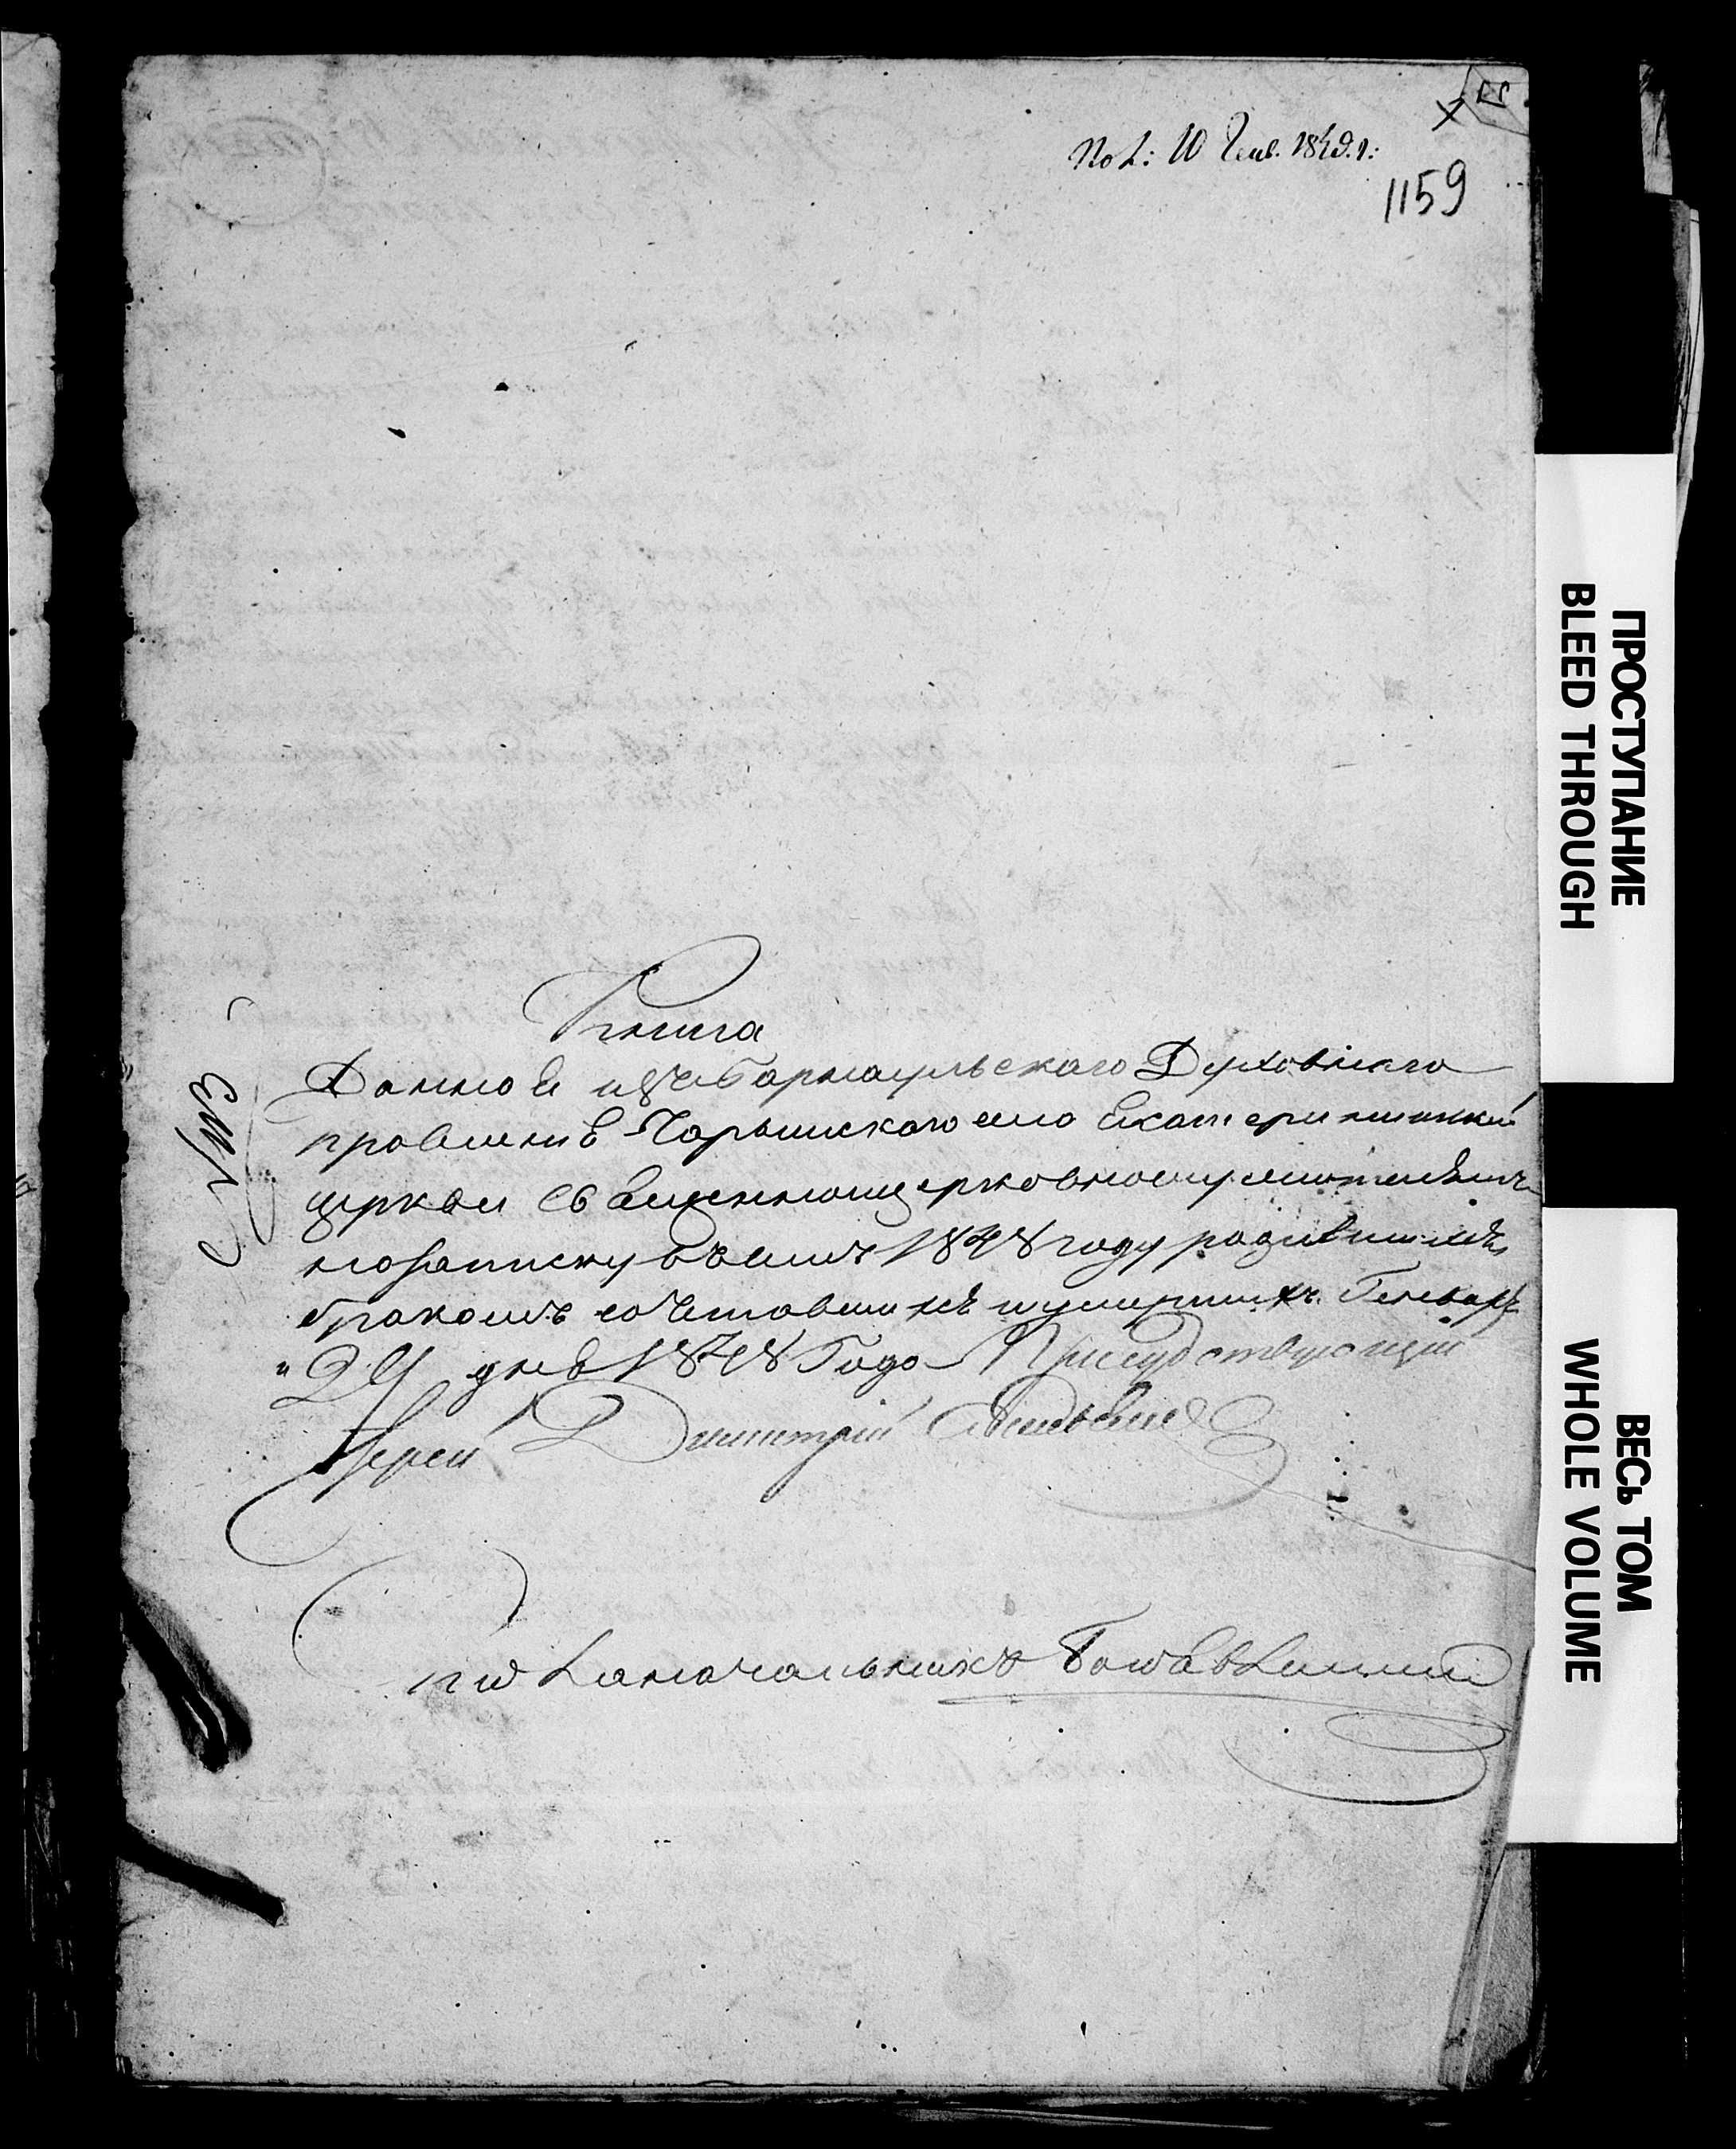 1159
Книга
Данная изъ Барнаульскаго Духовнаго
правленія Чарышскаго села Екатерининской
церкви священноцерковнослужителямъ
на записку въ семъ 1848 году родившихся,
бракомъ сочетавшихся и умершихъ Генваря
"24 дня 1848 Года Присудствующій
Іерей Димитрій
ПРОСТУПАНИЕ
BLEED THROUGH
ВЕСЬ ТОМ
WHOLE VOLUME